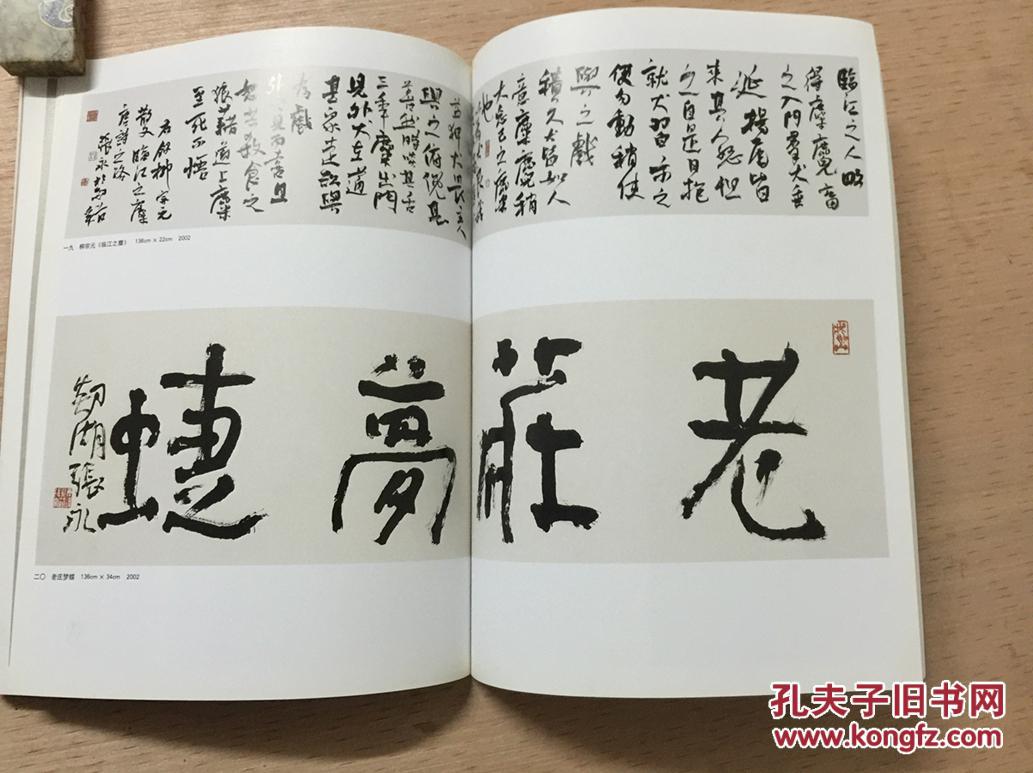 臨江之人畋
得麋麑畜
之入門羣犬垂
涎揚尾皆
来其人怒怛
之自是日抱
就犬習示之
使勿動稍使
與之戲
積久犬皆如人
意麋麑稍
大忘己之麋
也
犬畏主人
與之俯仰甚
善然時啖其舌
三年麋出門
見外犬在道
甚衆走欲與
爲戲
外犬見而喜且
怒共殺食之
狼藉道上麋
至死不悟
右錄柳宗元
散文臨江之麋
張永
一九 柳宗元《临江之麋》 136cm × 22cm 2002
老莊夢蝶
湖張永
二〇 老庄梦蝶 136cm × 34cm 2002
孔夫子旧书网
www.kongfz.com